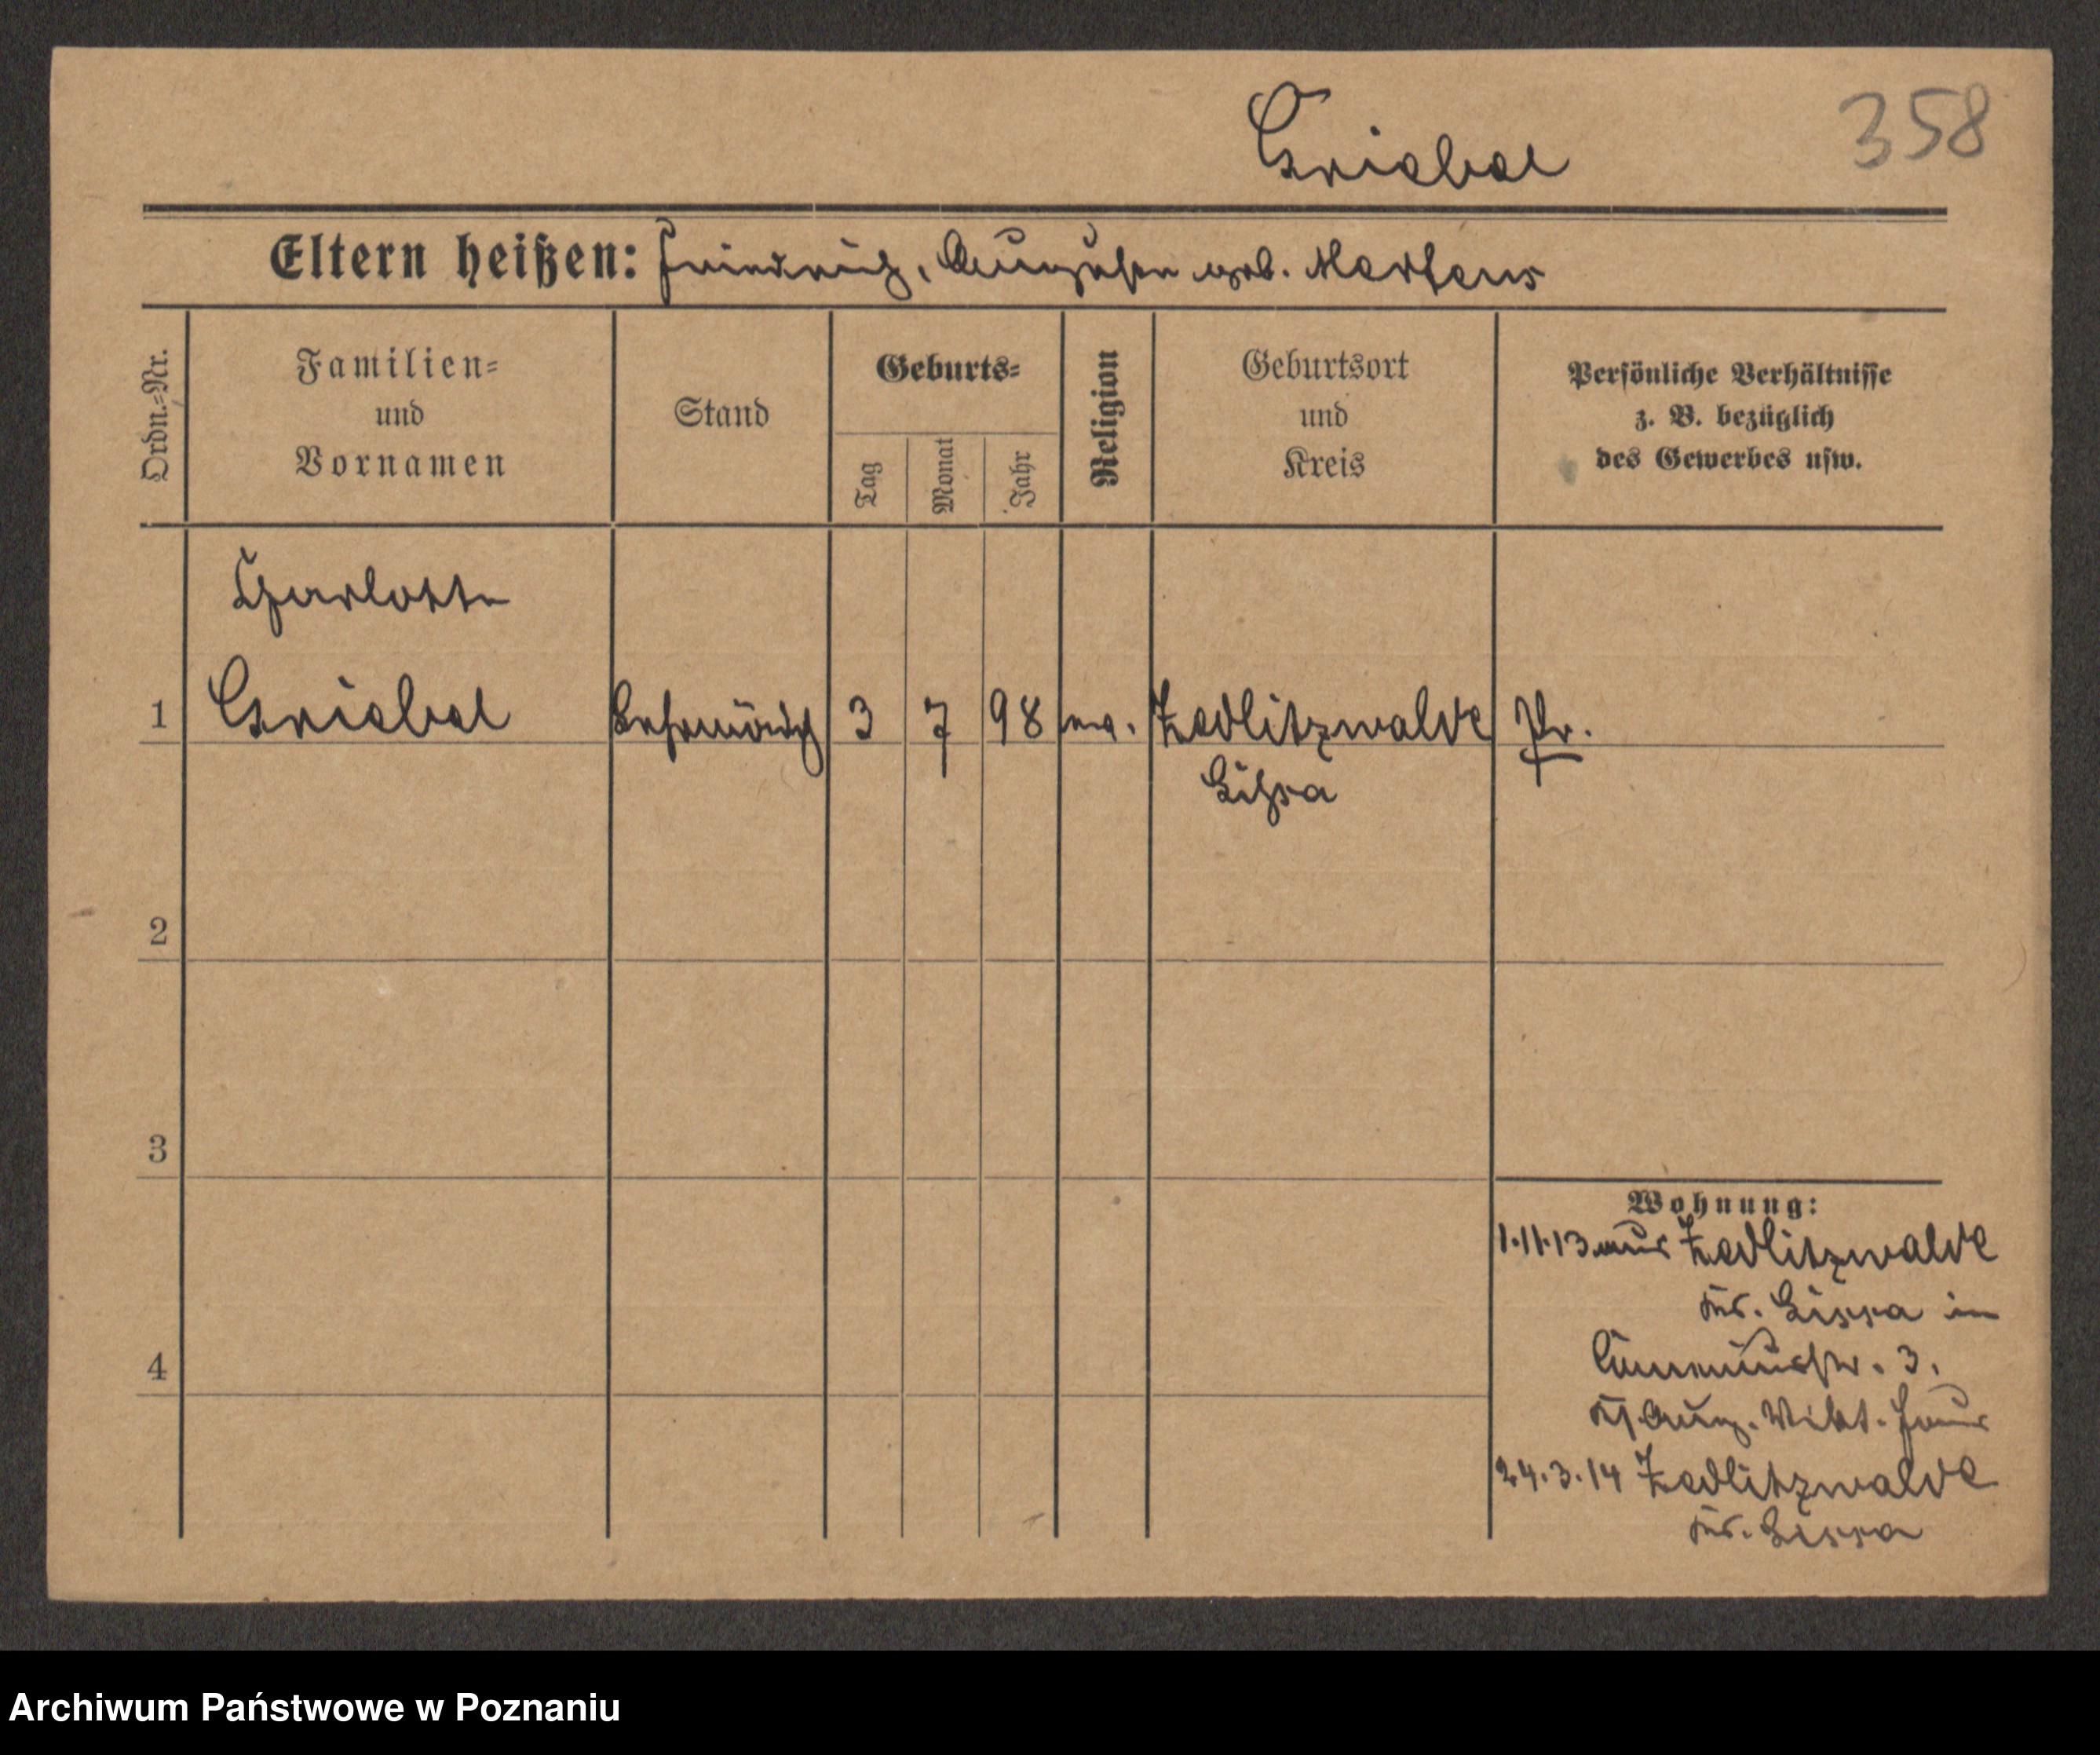 358
Griebel
Eltern heißen: Friedrich, Auguste geb. Mertens
Ordn.-Nr.
Familien-
und
Vornamen
Stand
Geburts-
Tag
Monat
Jahr
Religion
Geburtsort
und
Kreis
Persönliche Verhältnisse
z. B. bezüglich
des Gewerbes usw.
Charlotte
1 Griebel 3 7 98 ev. Zedlitzwalde Pr.
Lissa
2
3
4
Wohnung:
1.11.13 aus Zedlitzwalde
Kr. Lissa in
3.
Aug. Vikt. Haus
24.3.14 Zedlitzwalde
Kr. Lissa
Archiwum Państwowe w Poznaniu